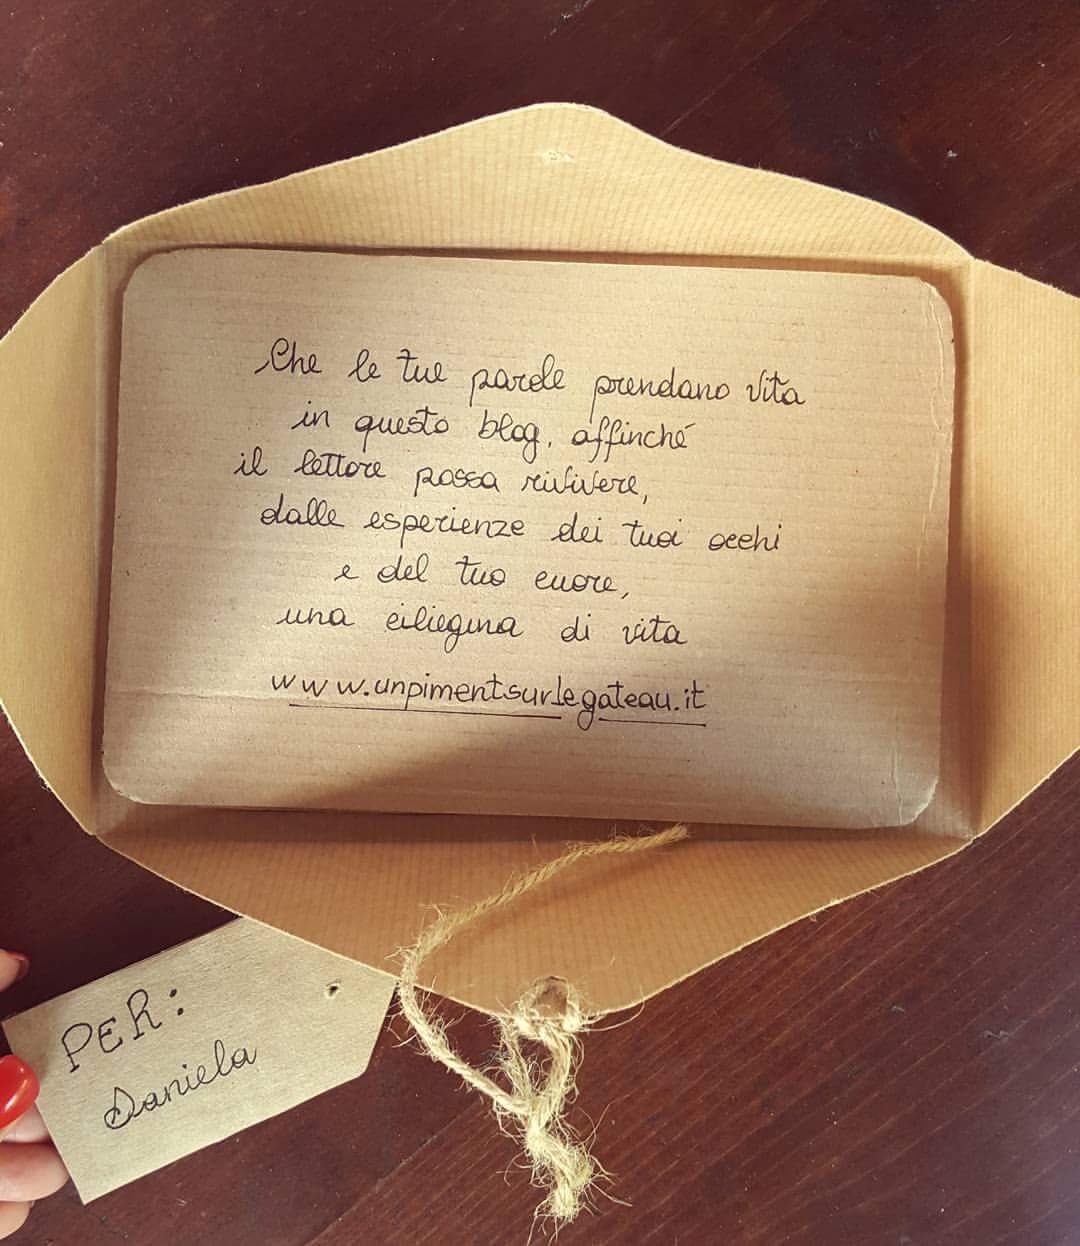 Che le tue parole prendano vita
in questo blog, affinché
il lettore possa rivivere,
dalle esperienze dei tuoi occhi
e del tuo cuore,
una ciliegina di vita
www.unpimentsurlegateau.it
PER:
Daniela